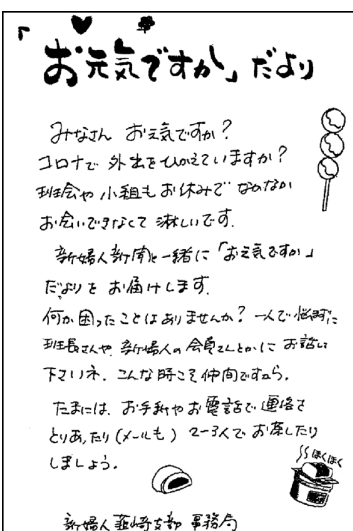 「お元気ですか」だより
みなさん お元気ですか？
コロナで 外出をひかえていますか？
班会や 小組もお休みで なかなか
お会いできなくて 淋しいです。
新婦人新聞と一緒に「お元気ですか」
だよりをお届けします。
何か困ったことはありませんか？ 一人で悩まずに
班長さんや、新婦人の会員さんとかに お話して
下さいネ。こんな時こそ仲間ですから。
たまには、お手紙やお電話で 連絡を
とりあったり（メールも）2〜3人で お茶したり
しましょう。
ほくほく
新婦人韮崎支部 事務局